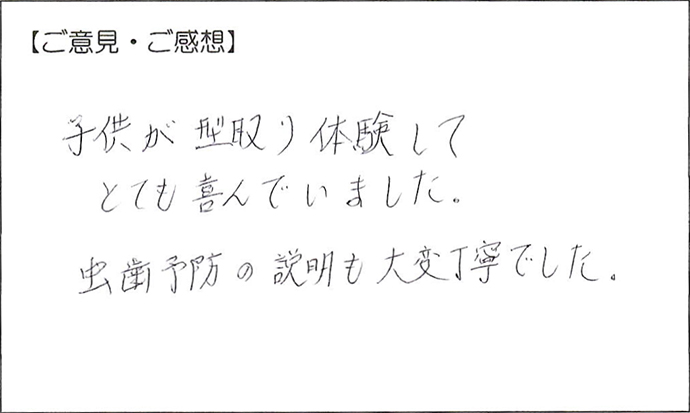 【ご意見・ご感想】
子供が型取り体験して
とても喜んでいました。
虫歯予防の説明も大変丁寧でした。